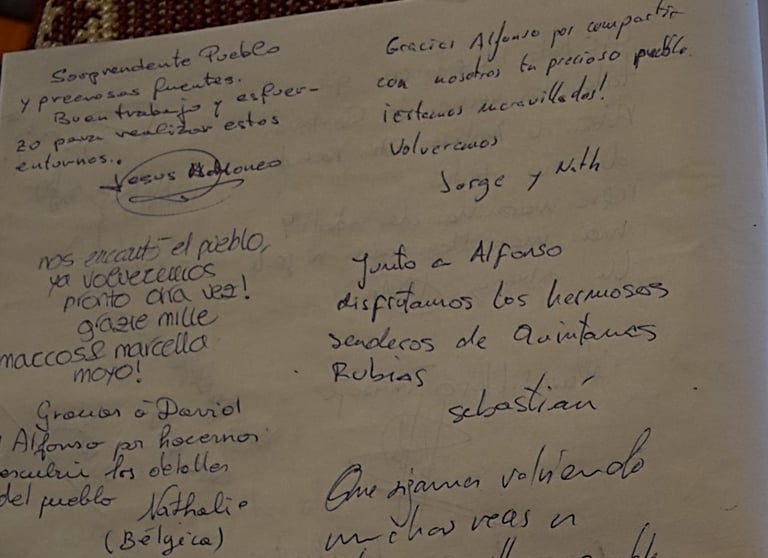 Sorprendente Pueblo
y preciosas fuentes.
Buen trabajo y esfuer-
zo para realizar estos
entornos..
Jesus
nos encantó el pueblo,
ya volveremos
pronto otra vez!
grazie mille
marcella
moyo!
Gracias a David
Alfonso por hacernos
los detalles
del pueblo Nathalie
(Bélgica)
Gracias Alfonso por compartir
con nosotros tu precioso pueblo.
¡estamos maravillados!
Volveremos
Jorge y Nath
Junto a Alfonso
disfrutamos los hermosos
senderos de Quintanas
Rubias
Sebastián
Que sigamos volviendo
muchas veces